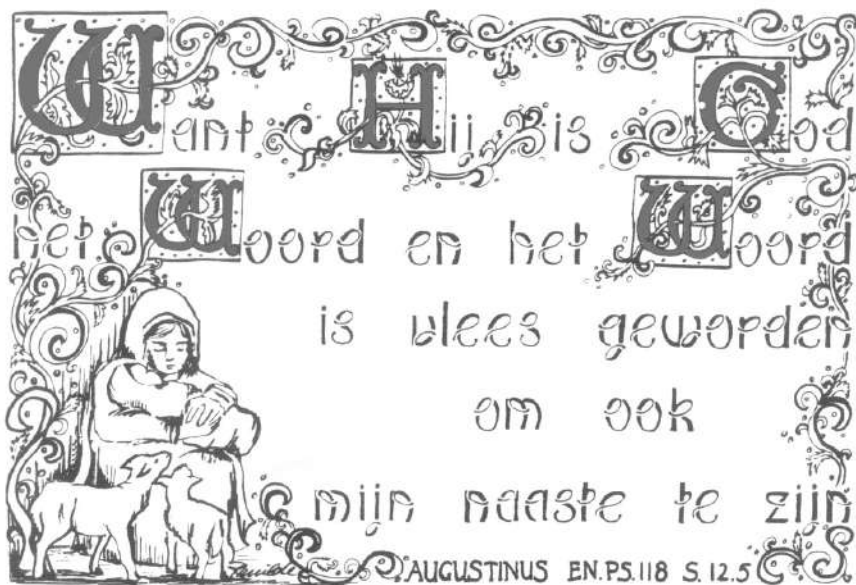 Want Hij is God
het Woord en het Woord
is vlees geworden
om ook
mijn naaste te zijn
AUGUSTINUS EN.PS.118 S.12.5